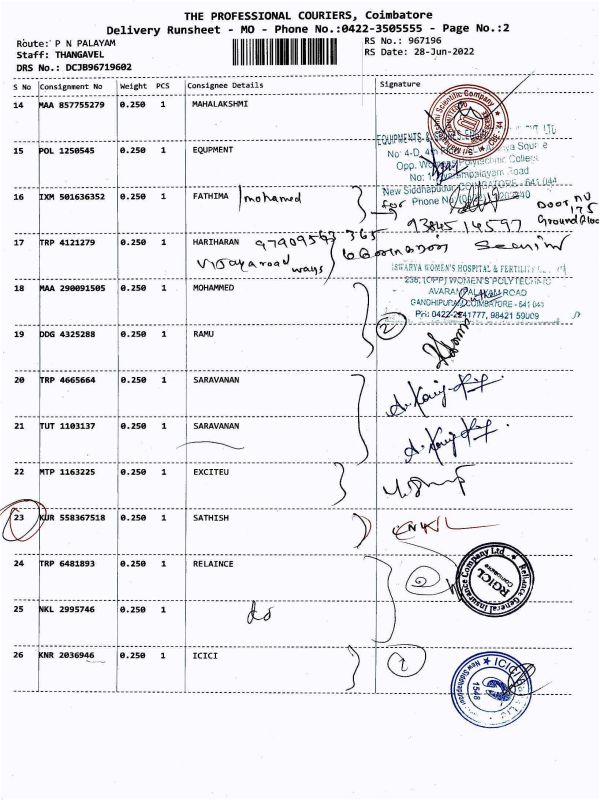 THE PROFESSIONAL COURIERS, Coimbatore
Delivery Runsheet - MO - Phone No.:0422-3505555 - Page No.:2
Route: P N PALAYAM
RS No.: 967196
Staff: THANGAVEL
RS Date: 28-Jun-2022
DRS No.: DCJB96719602
S No Consignment No Weight PCS Consignee Details Signature
14 MAA 857755279 0.250 1 MAHALAKSHMI
15 POL 1250545 0.250 1 EQUPMENT
No: 4-D, 4th
Opp. Women's Polytechnic College
16 IXM 501636352 0.250 1 FATHIMA mohamed
New Siddhapudur
for Phone No
93845 14597
Door No 175
Ground floor
17 TRP 4121279 0.250 1 HARIHARAN
ISWARYA WOMEN'S HOSPITAL & FERTILITY
236, (OPP) WOMEN'S POLYTECHNIC
AVARAMPALAYAM ROAD
GANDHIPURAM, COIMBATORE - 641 044
PH: 0422-2541777, 98421 59009
18 MAA 290091505 0.250 1 MOHAMMED
2
19 DDG 4325288 0.250 1 RAMU
20 TRP 4665664 0.250 1 SARAVANAN
21 TUT 1103137 0.250 1 SARAVANAN
22 MTP 1163225 0.250 1 EXCITEU
23 KUR 558367518 0.250 1 SATHISH
24 TRP 6481893 0.250 1 RELAINCE
2
Reliance General Insurance Company Ltd
RGICL
Coimbatore
25 NKL 2995746 0.250 1 do
26 KNR 2036946 0.250 1 ICICI
1
ICICI
1548
New Siddhapudur